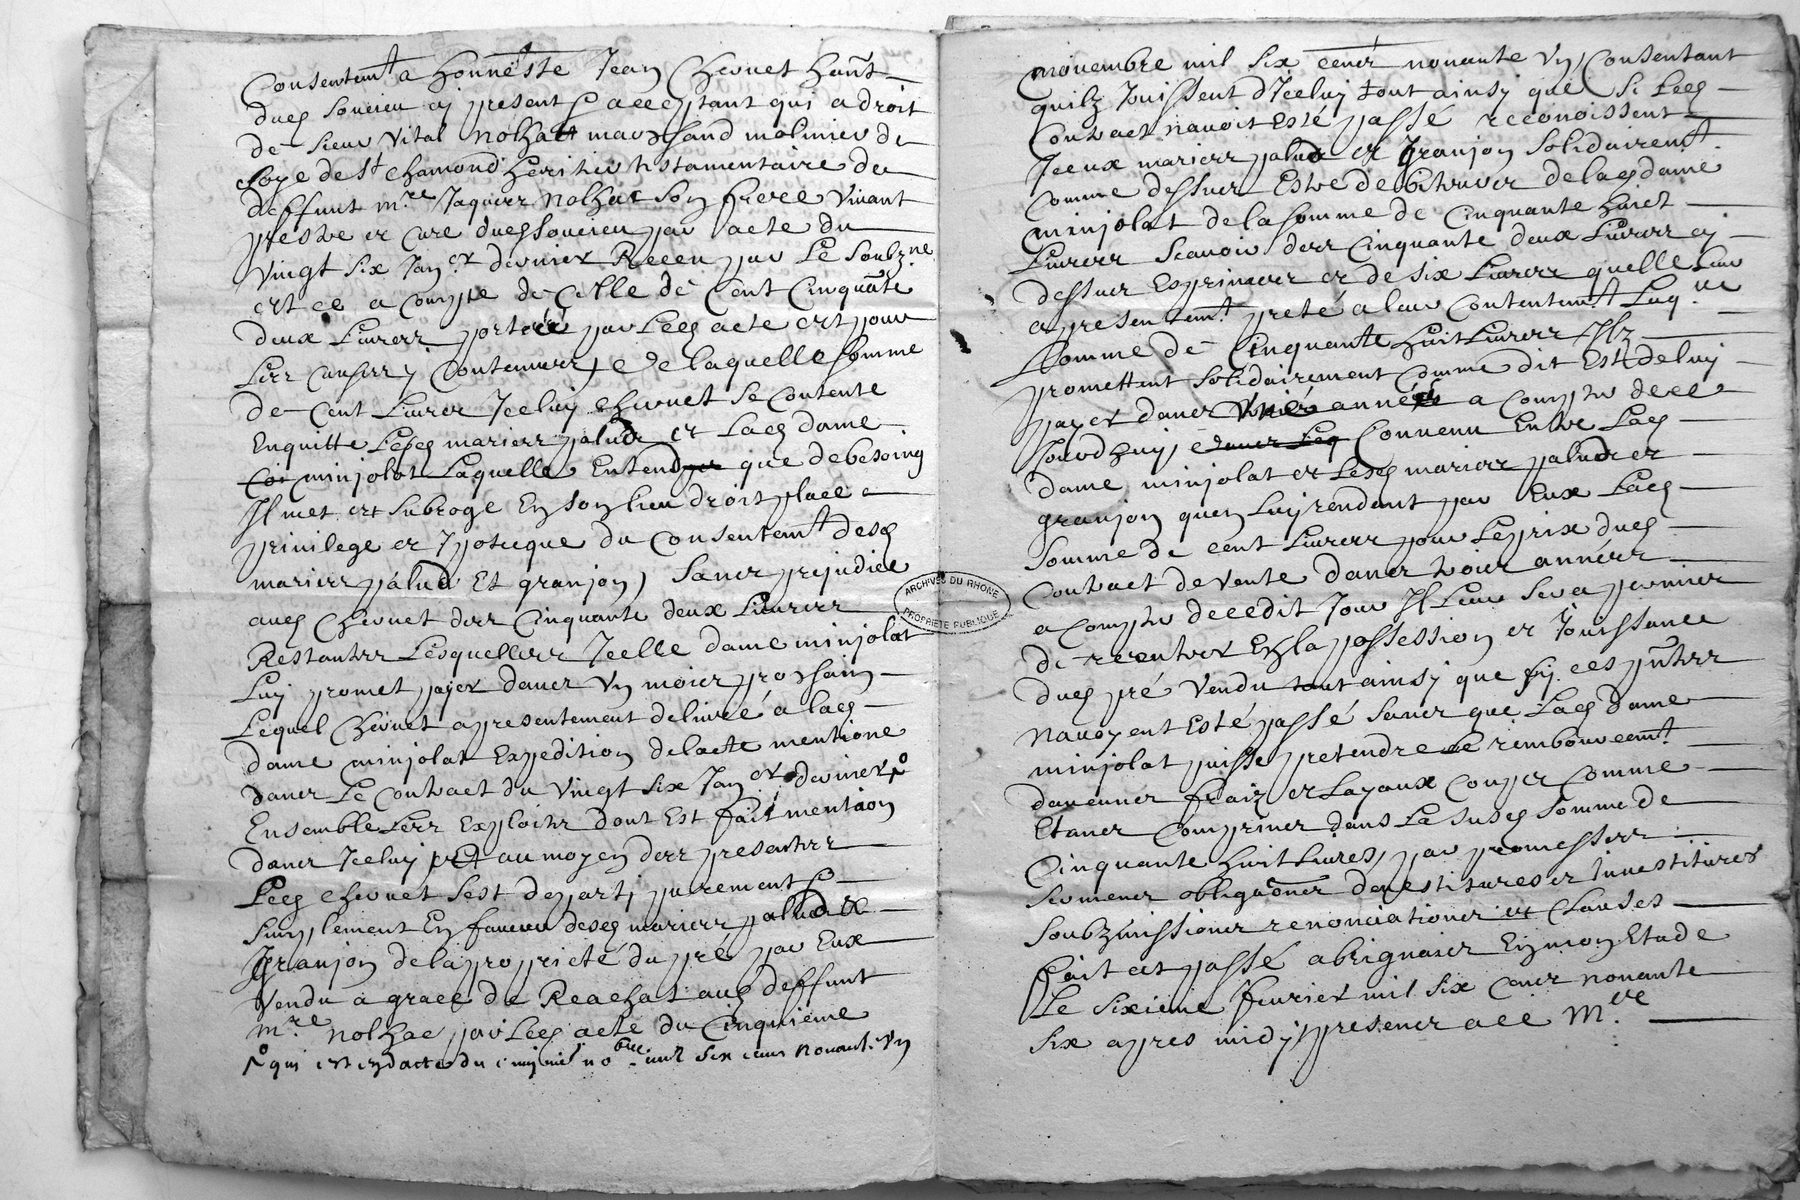 Consentemt a honneste Jean Chevnet hant
dud souvieu cy present & acceptant qui a droit
de sieur Vital Nolhac marchand molinier de
soye de St Chamond heritier testamentaire de
deffunt mre Jaques Nolhac son frere vivant
prestre et cure dud souvieu par acte du
vingt six Janer dernier Receu par Le soubzne
est ce a compte de Celle de Cent Cinquāte
deux Livres portée par Led acte est pour
Les causes y contenues, de laquelle somme
de Cent Livres Jceluy Chevnet se contente
Enquitte Lesd maries palud et Lad dame
minjolat Laquelle Entend que debesoing
Il met et subroge En son lieu droit place
privilege et ypoteque du Consentemt desd
maries palud Et granjon, sans prejudice
aud Chevnet des Cinquante deux Livres
Restantes Lesquelles Jcelle dame minjolat
Luy promet payer dans un mois prochain
Lequel Chevnet a presentement delivré a lad
dame minjolat Expedition delacte mentione
dans Le Contract du vingt six Janer dernier
Ensemble Les Exploits dont Est fait mention
dans Jceluy et au moyen des presentes
Led Chevnet sest departi purement &
simplement En faveur desd maries palud &
Granjon de la proprieté du pre par Eux
vendu a grace de Reachat aud deffunt
mre Nolhac par Led acte du Cinquieme
qui est en datte du cinquie nobre mil six cens nonante un
novembre mil six cens nonante un, Consentant
quilz Jouissent dJceluy tout ainsy que si Led
Contract navoit esté passé reconoissent
Jceux maries palud et Granjon solidairemt
comme dessus Estre debiteurs de lad dame
minjolat de la somme de Cinquante huict
Livres scavoir des Cinquante deux Livres cy
dessus Exprimees et de six Livres quelle Leur
a presentemt preté a leur Contentemt Laqlle
somme de Cinquante huit Livres Ilz
promettent solidairement comme dit Est deluy
payer dans année a compter de ce
Jourdhuy, Convenu Entre Lad
dame minjolat et Lesd maries palud et
granjon quen Luy rendant par Eux Lad
somme de cent Livres pour Le prix dud
Contract de vente dans trois années
a compter de cedit Jour Il Leur sera permier
de rentrer En la possession et Jouissance
dud pré vendu tout ainsy que sy ces pntes
navoyent Esté passé sans que Lad dame
minjolat puisse pretendre le rembourcemt
daucuns fraiz et Layaux coups Comme
Etans Comprins dans La susd somme de
Cinquante huit Livres, par promesses
sermens obligaōns devestitures et Investitures
soubzmissions renonciations et Clauses
fait et passé a brignais En mon Etude
Le sixieme fevrier mil six cens nonante
six apres midy presens ace Mre
ARCHIVES DU RHONE
PROPRIETE PUBLIQUE